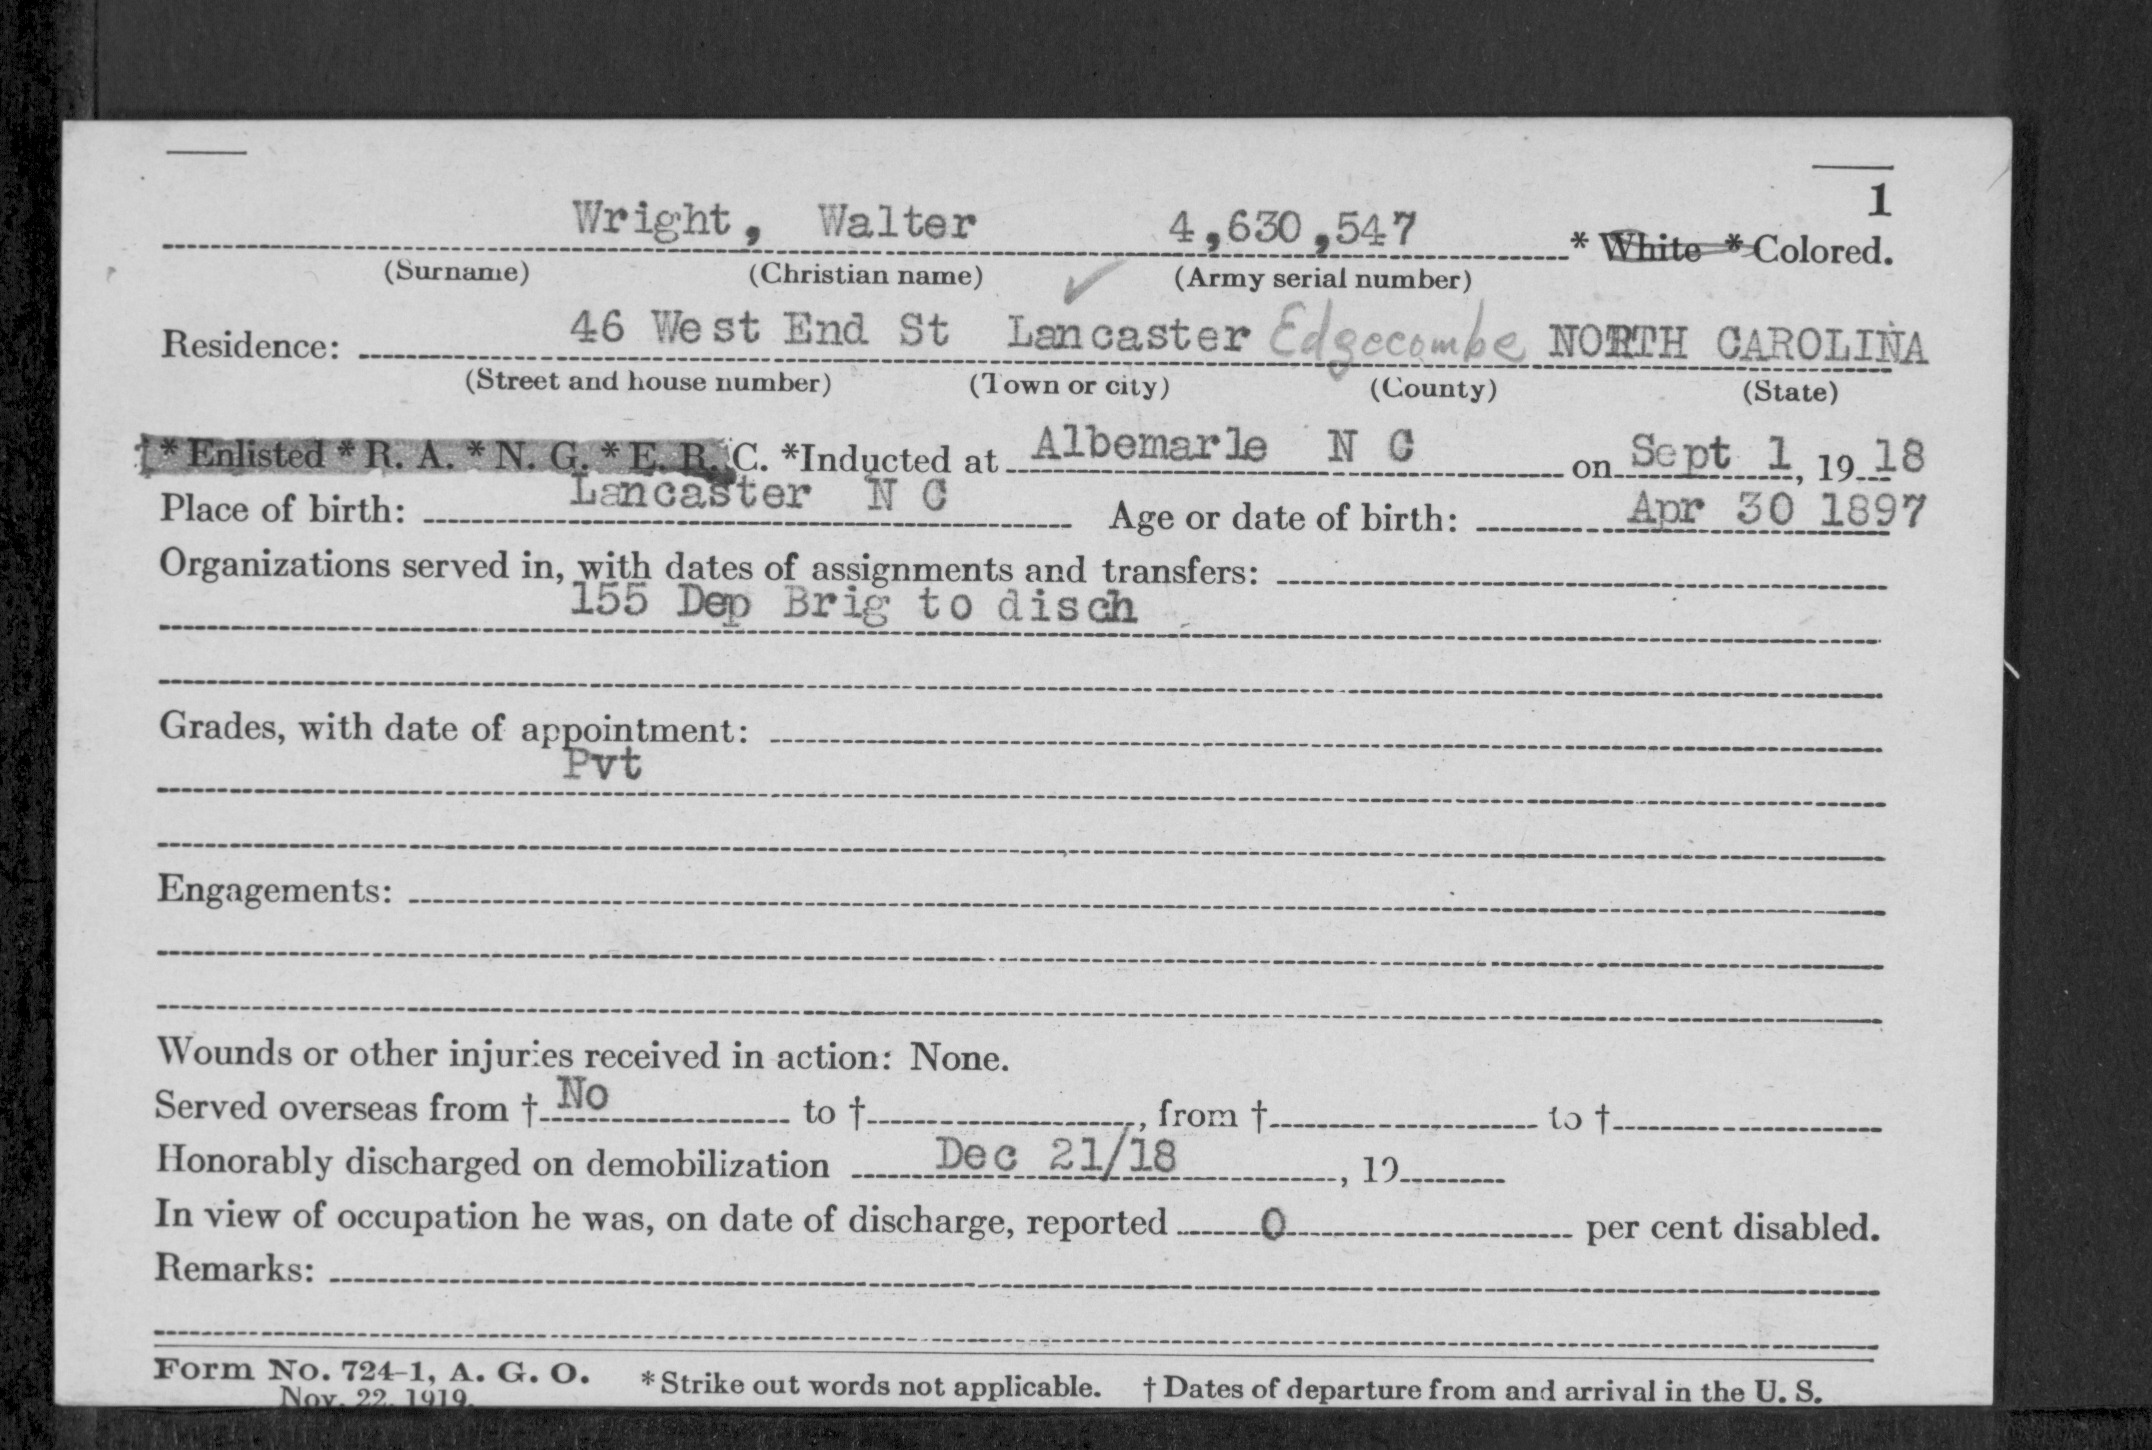 1
Wright, Walter 4,630,547 * White * Colored.
(Surname) (Christian name) (Army serial number)
Residence: 46 West End St Lancaster Edgecombe NORTH CAROLINA
(Street and house number) (Town or city) (County) (State)
†* Enlisted * R. A. * N. G. * E. R. C. *Inducted at Albemarle N C on Sept 1, 19 18
Place of birth: Lancaster N C Age or date of birth: Apr 30 1897
Organizations served in, with dates of assignments and transfers:
155 Dep Brig to disch
Grades, with date of appointment:
Pvt
Engagements:
Wounds or other injuries received in action: None.
Served overseas from † No to †, from † to †
Honorably discharged on demobilization Dec 21/18, 19
In view of occupation he was, on date of discharge, reported 0 per cent disabled.
Remarks:
Form No. 724-1, A. G. O. * Strike out words not applicable. † Dates of departure from and arrival in the U. S.
Nov. 22, 1919.